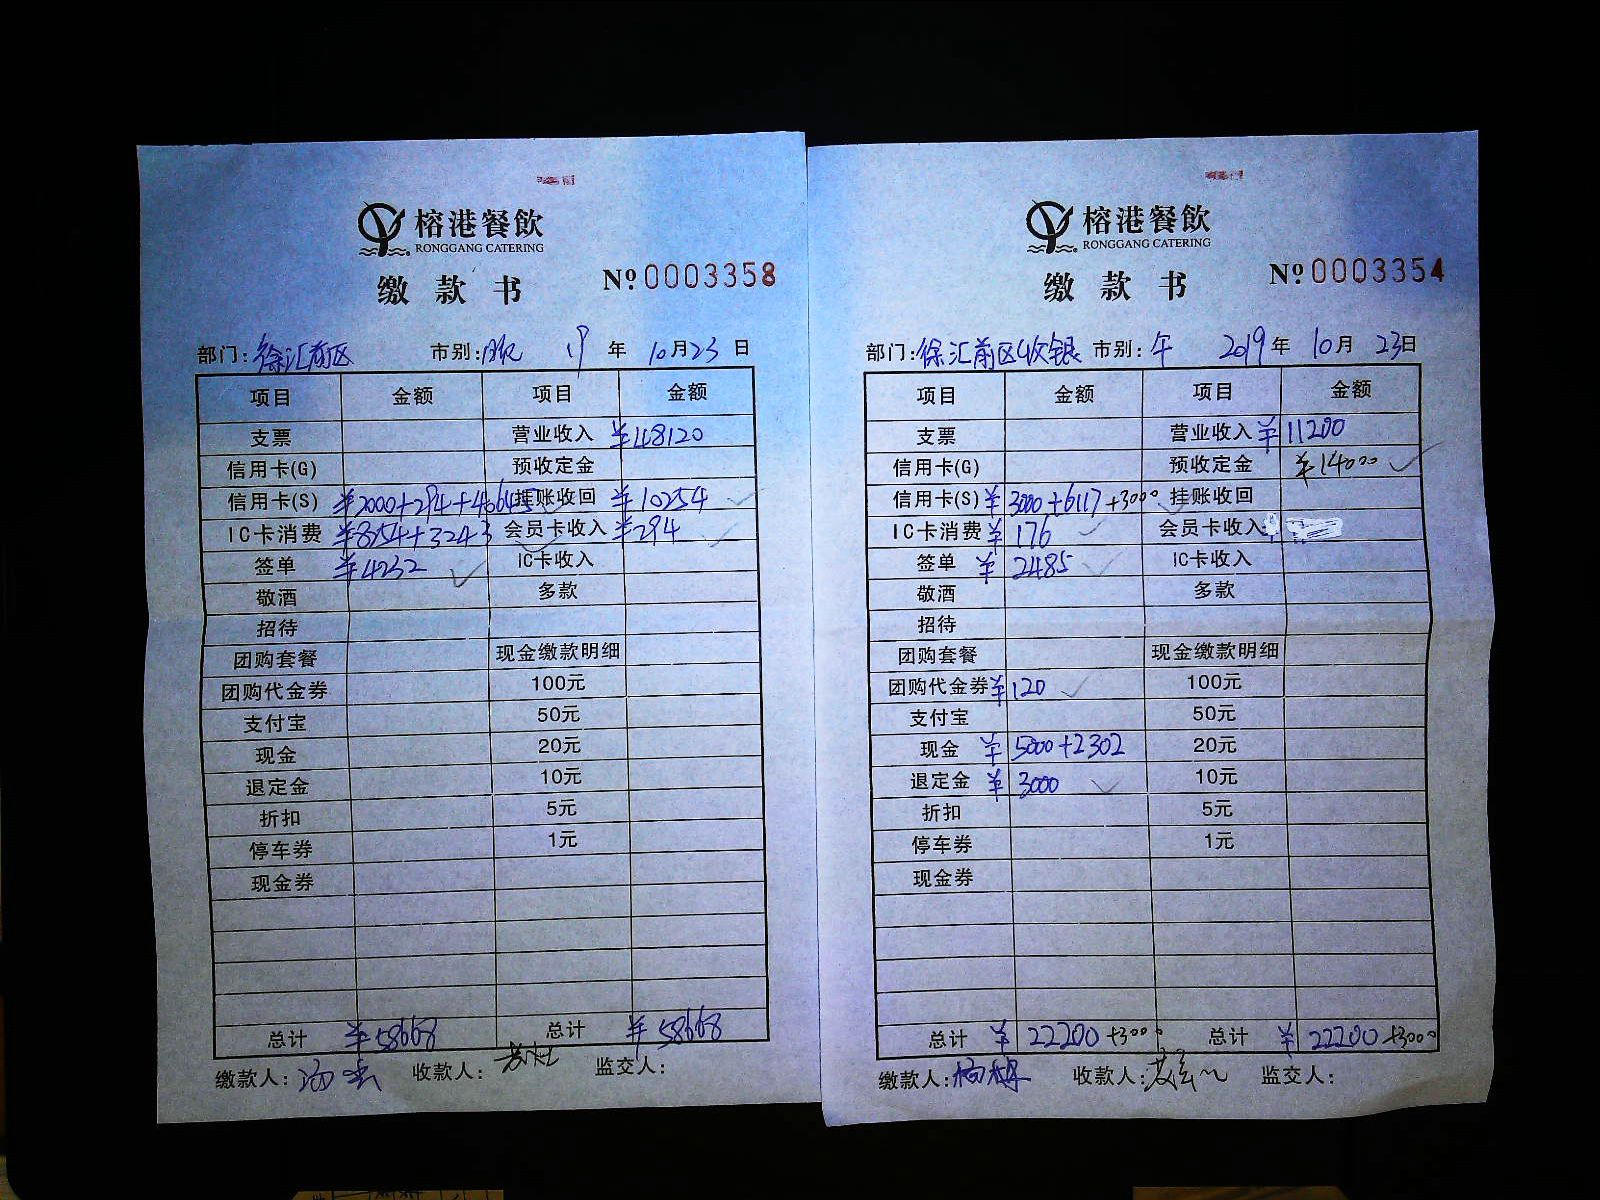 榕港餐飲
RONGGANG CATERING
缴款书
№0003358
部门:徐汇前区 市别:晚 19年10月23日
项目 金额 项目 金额
支票 营业收入 ¥48120
信用卡(G) 预收定金
信用卡(S) ¥2000+294+40645 挂账收回 ¥10254
IC卡消费 ¥8254+3243 会员卡收入 ¥294
签单 ¥4232 IC卡收入
敬酒 多款
招待
团购套餐 现金缴款明细
团购代金券 100元
支付宝 50元
现金 20元
退定金 10元
折扣 5元
停车券 1元
现金券
总计 ¥58668 总计 ¥58668
缴款人: 收款人: 监交人:
榕港餐飲
RONGGANG CATERING
缴款书
№0003354
部门:徐汇前区收银 市别:午 2019年10月23日
项目 金额 项目 金额
支票 营业收入 ¥11200
信用卡(G) 预收定金 ¥14000
信用卡(S) ¥3000+6117+3000 挂账收回
IC卡消费 ¥176 会员卡收入
签单 ¥2485 IC卡收入
敬酒 多款
招待
团购套餐 现金缴款明细
团购代金券 ¥120 100元
支付宝 50元
现金 ¥5000+2302 20元
退定金 ¥3000 10元
折扣 5元
停车券 1元
现金券
总计 ¥22200+3000 总计 ¥22200+3000
缴款人: 收款人: 监交人: